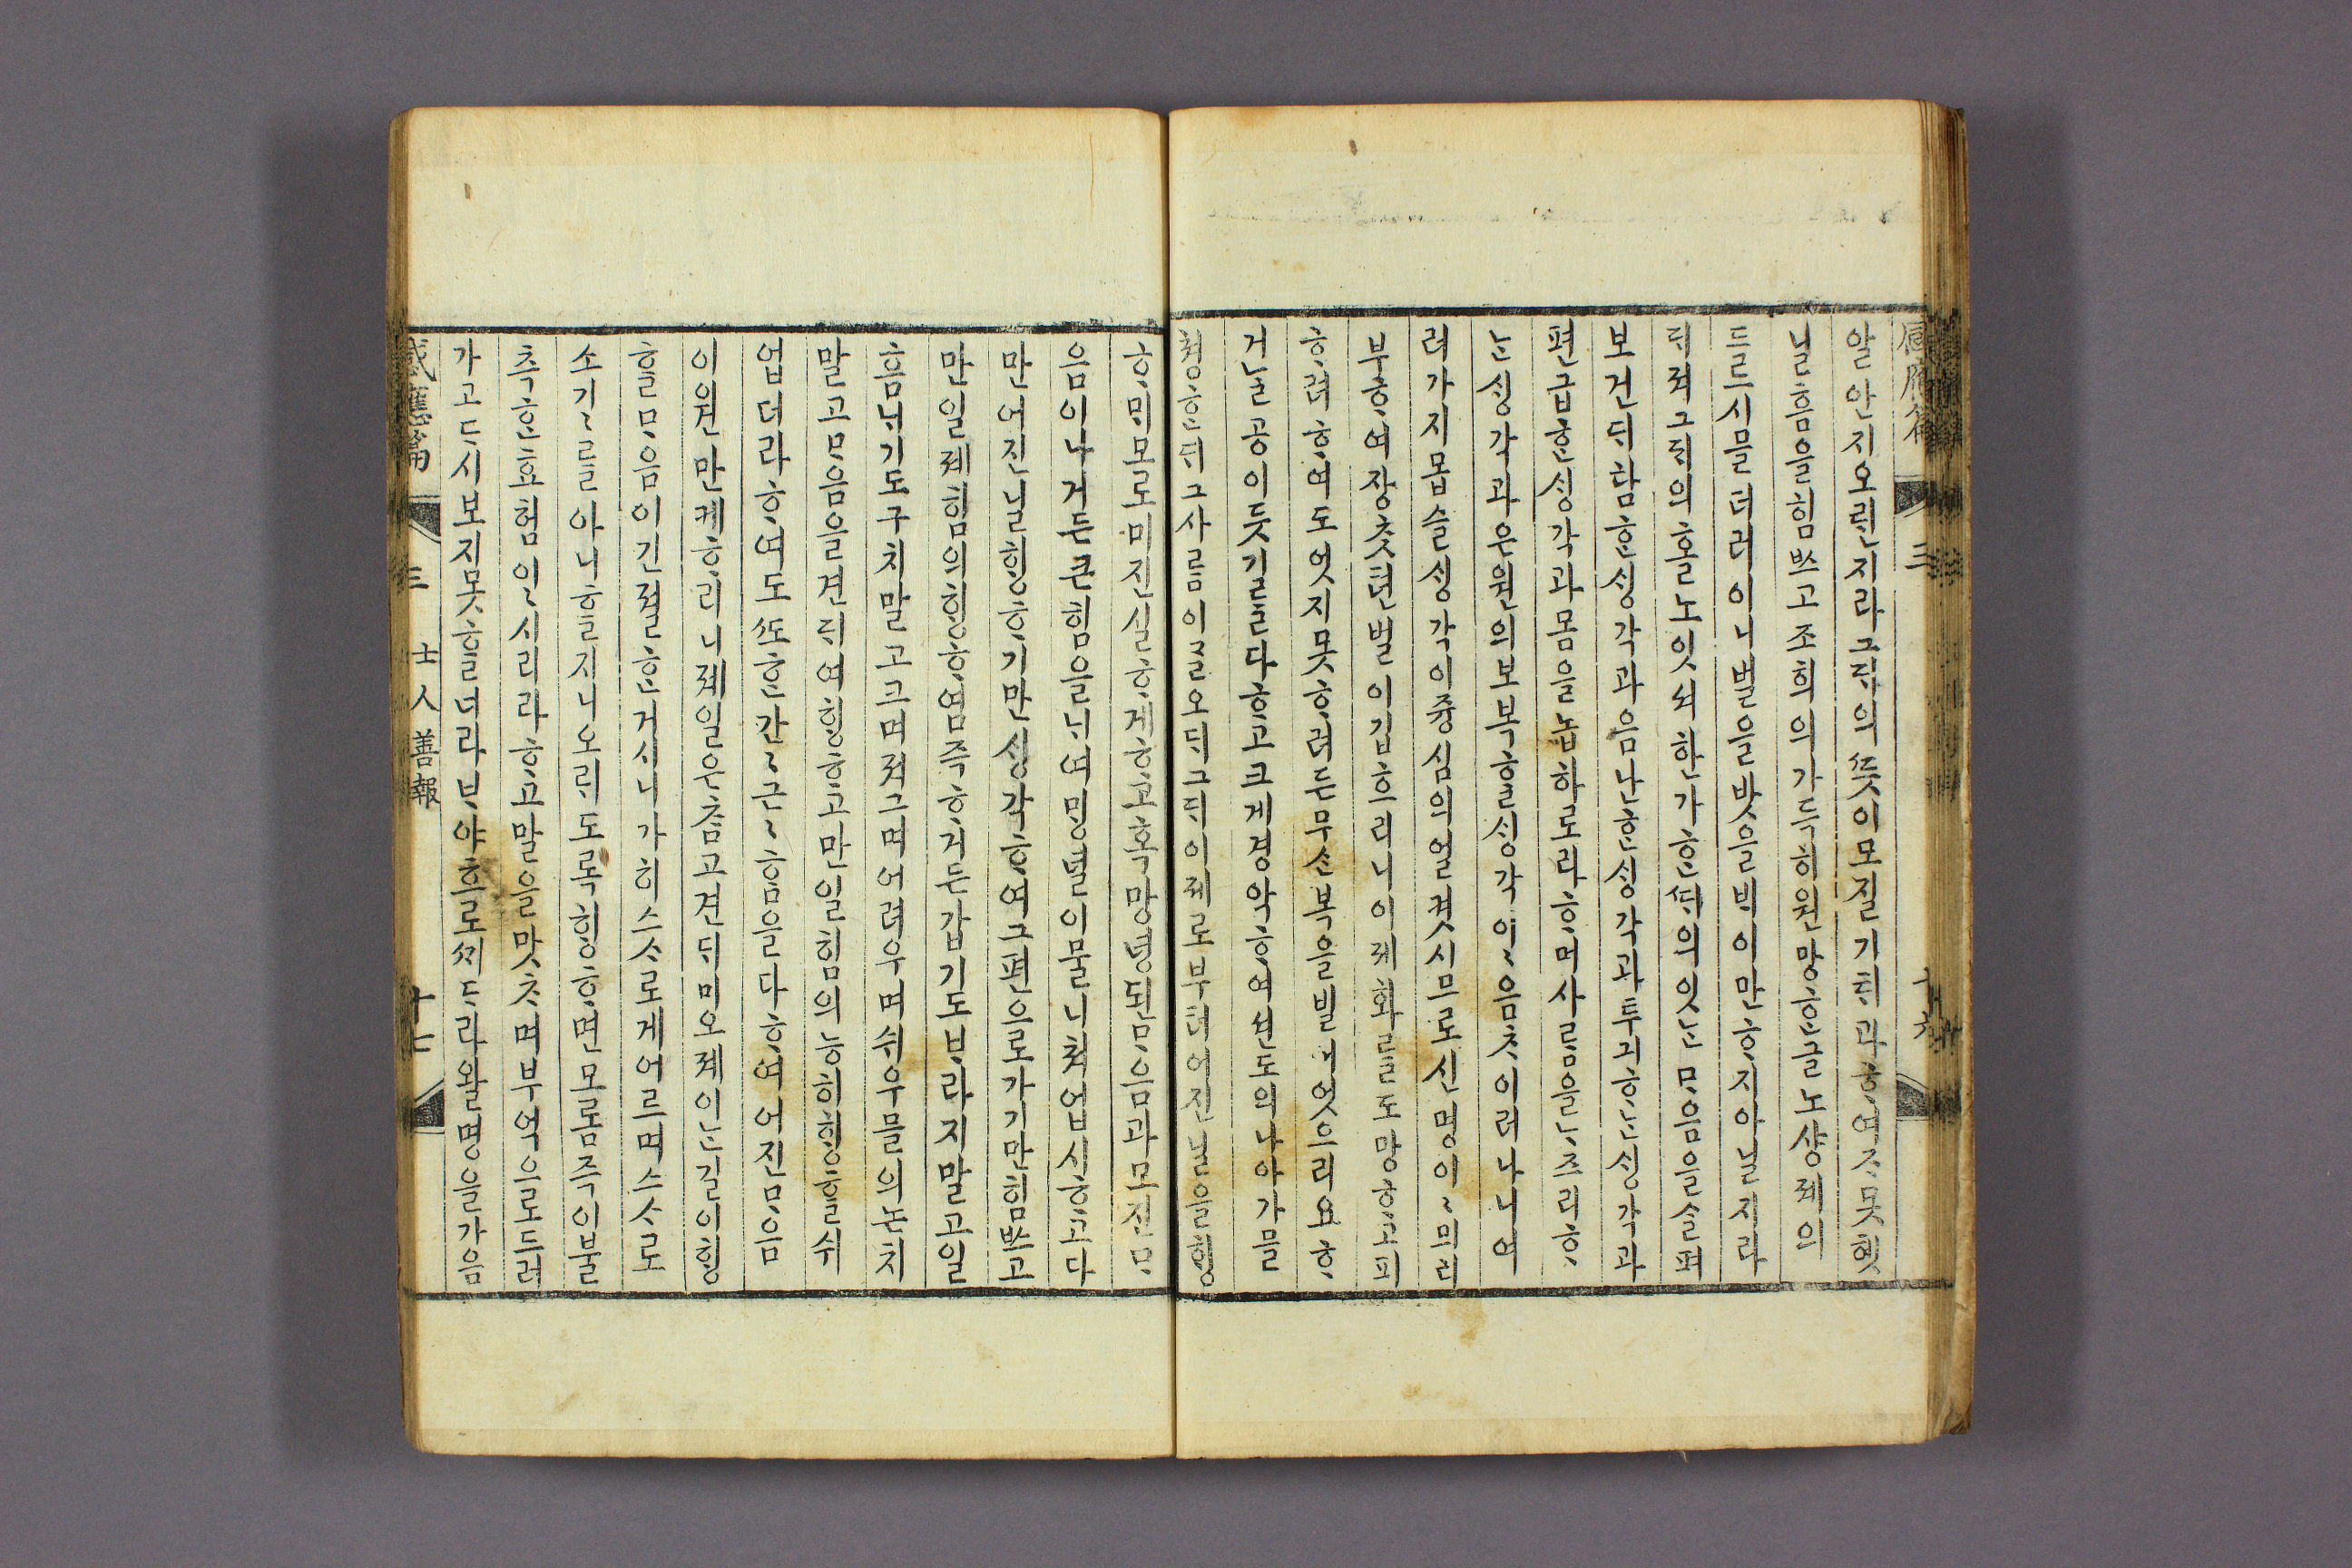 感應篇 三 十六
알안지오란지라그ᄃᆡ의ᄯᅳᆺ이모질기ᄎᆔ라ᄒᆞ여ᄌᆞ못헷
닐흠을힘ᄡᅳ고조희의가득히원망ᄒᆞᆫ글노샹졔의
드르시믈더러이니벌을밧을ᄇᆡ이만ᄒᆞ지아닐지라
ᄌᆡ젹그ᄃᆡ의홀노잇셔한가ᄒᆞᆫᄯᆡ의잇ᄂᆞᆫᄆᆞ음을ᄉᆞᆯ펴
보건ᄃᆡ탐ᄒᆞᆫᄉᆡᆼ각과음난ᄒᆞᆫᄉᆡᆼ각과투긔ᄒᆞᄂᆞᆫᄉᆡᆼ각과
편급ᄒᆞᆫᄉᆡᆼ각과몸을놉히도라ᄒᆞ며사ᄅᆞᆷ을ᄂᆞ즈리ᄒᆞ
ᄂᆞᆫᄉᆡᆼ각과은원의보복ᄒᆞᆯᄉᆡᆼ각이〻음ᄎᆞ이러나니여
러가지몹슬ᄉᆡᆼ각이즁심의얼켯시므로신명이〻ᄆᆡ리
부ᄒᆞ여쟝ᄎᆞᆺ텬벌이급ᄒᆞ리니이졔화를도망ᄒᆞ고피
ᄒᆞ려ᄒᆞ여도엇지못ᄒᆞ려든무슨복을빌어엇으리요ᄒᆞ
거ᄂᆞᆯ공이듯기를다ᄒᆞ고크게경악ᄒᆞ여ᄯᅡᆫ도의나아가믈
쳥ᄒᆞᆫᄃᆡ그사ᄅᆞᆷ이ᄀᆞᆯ오ᄃᆡ그ᄃᆡ이졔로부터어진닐을ᄒᆡᆼ
ᄒᆞᄆᆡ모로미진실ᄒᆞ게ᄒᆞ고혹망녕된음과모진ᄆᆞ
음이나거든큰힘을ᄂᆡ여밍녈이물니쳐업시ᄒᆞ고다
만어진닐ᄒᆡᆼᄒᆞ기만ᄉᆡᆼ각ᄒᆞ여그편으로가기만힘ᄡᅳ고
만일졔힘의ᄒᆡᆼᄒᆞ염즉ᄒᆞ거든갑기도ᄇᆞ라지말고일
흠나기도구치말고크며젹그며어려우며쉬우믈의논치
말고ᄆᆞ음을견ᄃᆡ여ᄒᆡᆼᄒᆞ고만일힘의능히ᄒᆡᆼᄒᆞᆯ쉬
업더라ᄒᆞ여도ᄯᅩᄒᆞᆫ간〻근〻ᄒᆞᆷ을다ᄒᆞ여어진ᄆᆞ음
이원만케ᄒᆞ리니졔일은참고견ᄃᆡ미오졔이ᄂᆞᆫ길이ᄒᆡᆼ
ᄒᆞᆯᄆᆞ음이긴졀ᄒᆞᆫ거시니가히스ᄉᆞ로게어르며스ᄉᆞ로
소기〻를아니ᄒᆞᆯ지니오ᄅᆡ도록ᄒᆡᆼᄒᆞ면모롬즉이믈
측ᄒᆞᆫ효험이〻시리라ᄒᆞ고말을맛ᄎᆞ며부억으로드러
가고드시보지못ᄒᆞᆯ너라ᄇᆞ야흐로ᄭᆡᄃᆞ라왈명을가음
感應篇 三 士人善報 十七